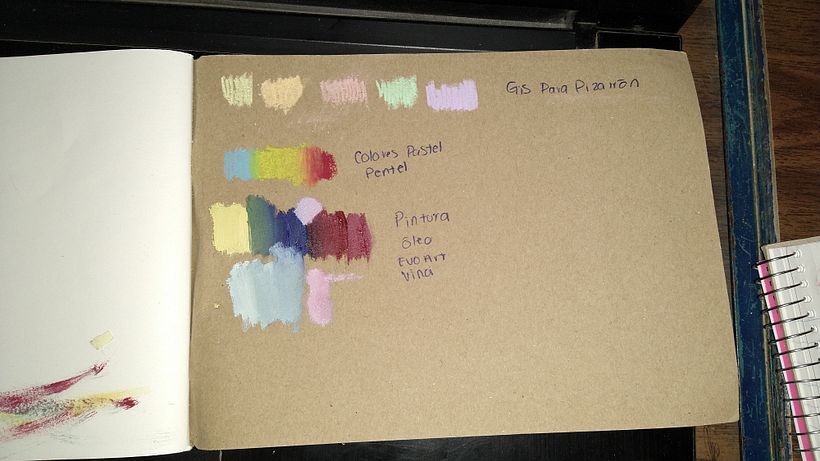 Gis Para Pizarrón
Colores Pastel
Pentel
Pintura
óleo
EVO Art
Vina